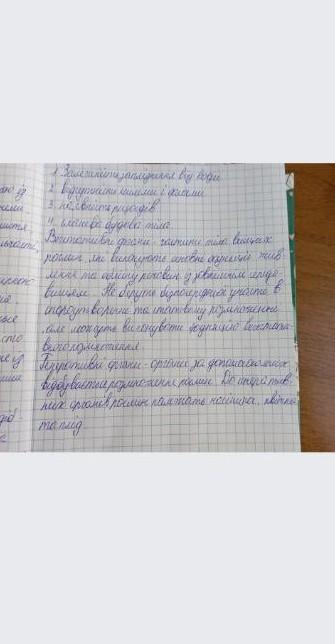 1. Залежність запліднення від води
2. відсутність ксилеми і флоеми
3. наявність ризоїдів
4. сланева будова тіла
Вегетативні органи - частини тіла вищих
рослин, які виконують основні функції жив-
лення та обміну речовин з зовнішнім середо-
вищем. Не беруть безпосередньої участі в
спороутворенні та статевому розмноженні
але можуть виконувати функцію вегетати-
вного розмноження.
Генеративні органи - органи за допомогою яких
відбувається розмноження рослин. До генератив-
них органів рослин належать насінина, квітка
та плід